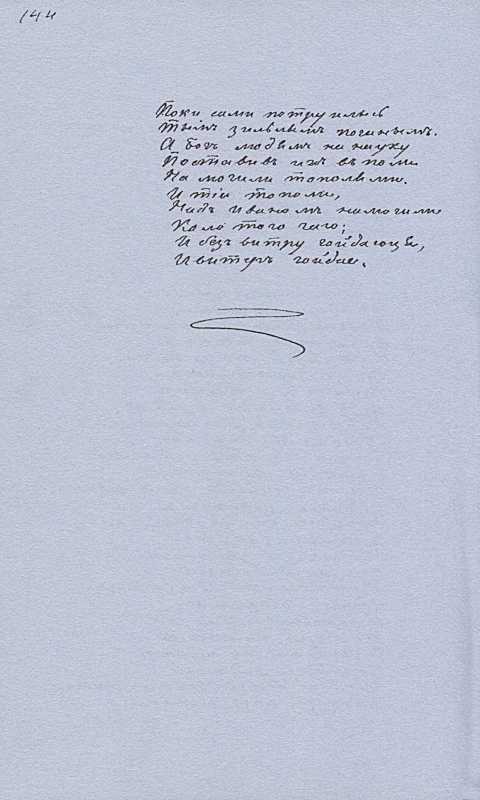 144
Поки сами потруилысь
Тымъ зильлымъ поганымъ.
А богъ людямъ на науку
Поставивъ ихъ въ поли
На могили тополями.
И тіи тополи,
Надъ Иваномъ на могили
Коло того гаю;
И безъ витру гойдаюця,
И витеръ гойдае.